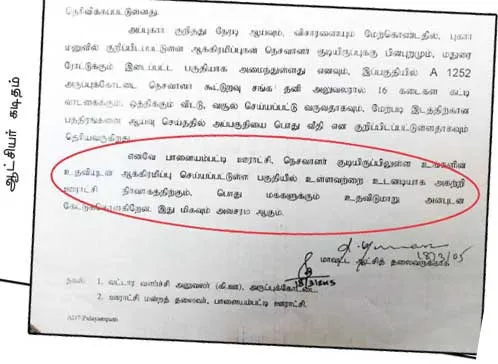 தெரிவிக்கப்பட்டுள்ளது.
அப்புகார் குறித்து நேரடி ஆய்வும், விசாரணையும் மேற்கொண்டதில், புகார்
மனுவில் குறிப்பிடப்பட்டுள்ள ஆக்கிரமிப்புகள் நெசவாளர் குடியிருப்புக்கு பின்புறமும், மதுரை
ரோட்டுக்கும் இடைப்பட்ட பகுதியாக அமைந்துள்ளது எனவும், இப்பகுதியில் A 1252
அருப்புக்கோட்டை நெசவாளர் கூட்டுறவு சங்க தனி அலுவலரால் 16 கடைகள் கட்டி
வாடகைக்கும், ஒத்திக்கும் விட்டு, வசூல் செய்யப்பட்டு வருவதாகவும், மேற்படி இடத்திற்கான
பத்திரங்களை ஆய்வு செய்ததில் அப்பகுதியை பொது வீதி என குறிப்பிடப்பட்டுள்ளதாகவும்
தெரியவருகிறது.
எனவே பாளையம்பட்டி ஊராட்சி, நெசவாளர் குடியிருப்பிலுள்ள உங்களின்
உதவியுடன் ஆக்கிரமிப்பு செய்யப்பட்டுள்ள பகுதியில் உள்ளவற்றை உடனடியாக அகற்றி
ஊராட்சி நிர்வாகத்திற்கும், பொது மக்களுக்கும் உதவிடுமாறு அன்புடன்
கேட்டுக்கொள்கிறேன். இது மிகவும் அவசரம் ஆகும்.
18/3/05
மாவட்ட ஆட்சித் தலைவருக்காக
18/3/2005
நகல்: 1. வட்டார வளர்ச்சி அலுவலர் (கி.ஊ), அருப்புக்கோட்டை
2. ஊராட்சி மன்றத் தலைவர், பாளையம்பட்டி ஊராட்சி.
ஆட்சியர் கடிதம்